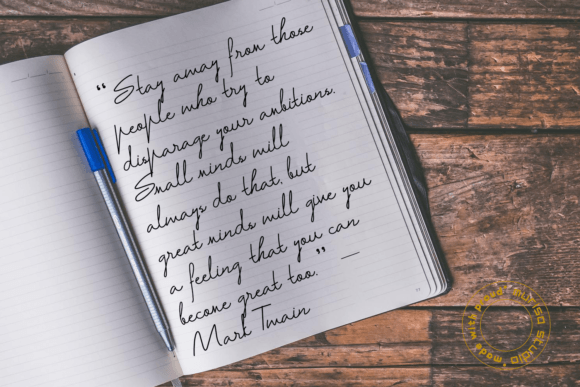 “Stay away from those
people who try to
disparage your ambitions.
Small minds will
always do that, but
great minds will give you
a feeling that you can
become great too.” —
Mark Twain
studio * made with Proud *